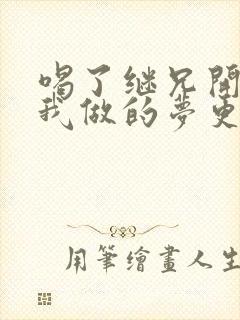 喝了继兄開
我做的夢更
用筆繪畫人生